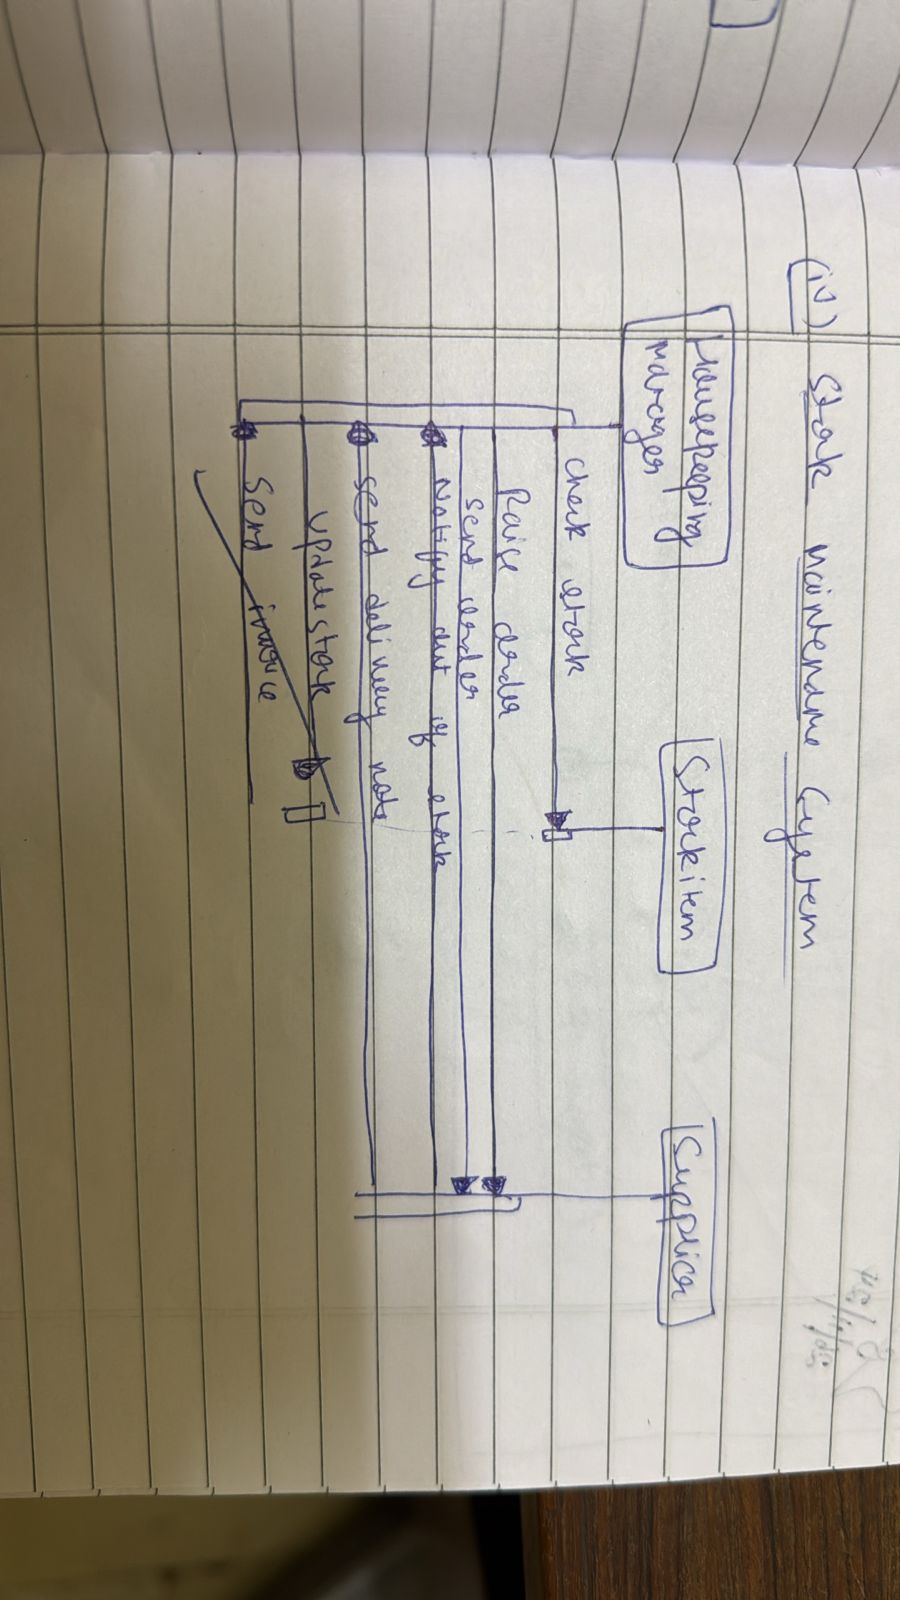 (iv) Stock maintenance System
Housekeeping
manager
Stockitem
Supplier
check stock
Raise order
Send order
Notify out of stock
send delivery note
update stock
Send invoice